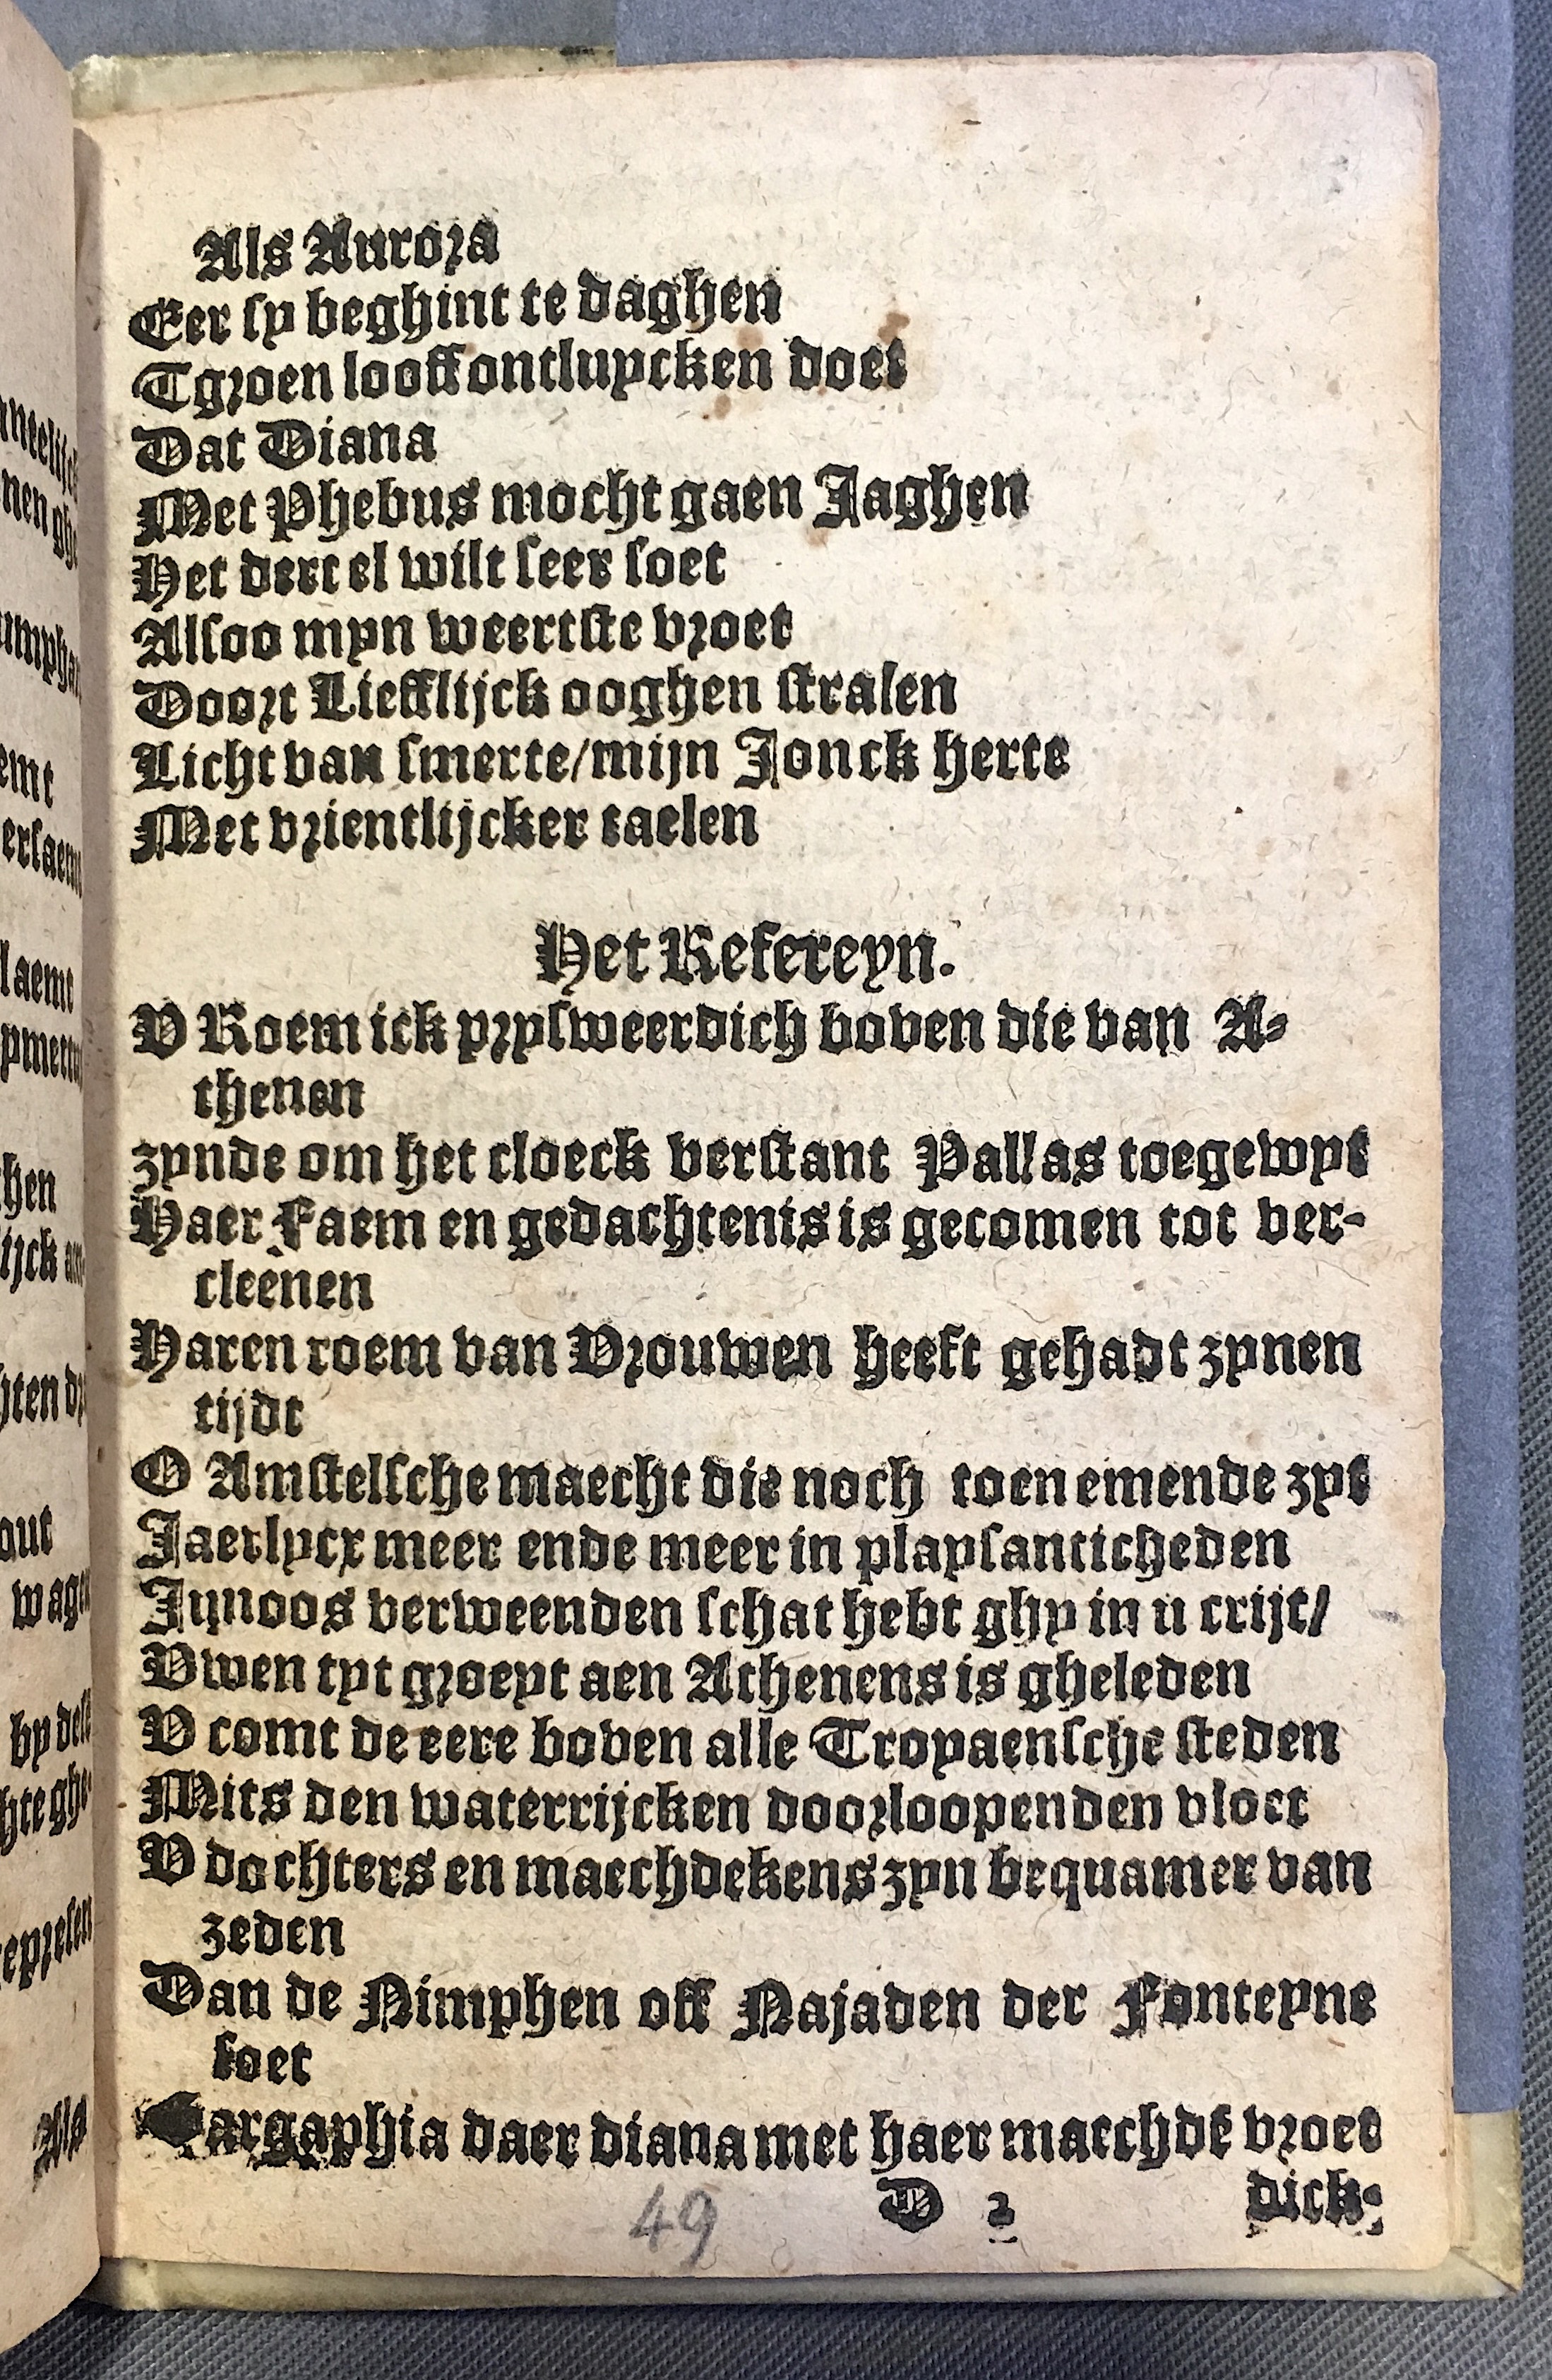 Als Aurora
Eer sy beghint te daghen
Tgroen looff ontluycken doet
Dat Diana
Met Phebus mocht gaen Jaghen
Het dertel wilt seer soet
Alsoo myn weertste vroet
Doort Liefflijck ooghen stralen
Licht van smerte/mijn Jonck herte
Met vrientlijcker taelen
Het Refereyn.
V Roem ick prysweerdich boven die van A-
thenen
zynde om het cloeck verstant Pallas toegewyt
Haer Faem en gedachtenis is gecomen tot ver-
cleenen
Haren roem van Vrouwen heeft gehadt zynen
tijdt
O Amstelsche maecht die noch toenemende zyt
Jaerlycx meer ende meer in playsanticheden
Junoos verweenden schat hebt ghy in u crijt/
Vwen tyt groeyt aen Athenens is gheleden
V comt de eere boven alle Troyaensche steden
Mits den waterrijcken doorloopenden vloet
V dochters en maechdekens zyn bequamer van
zeden
Dan de Nimphen off Najaden der Fonteyne
soet
Gargaphia daer diana met haer maechdē vroet
49
D 2
dick-